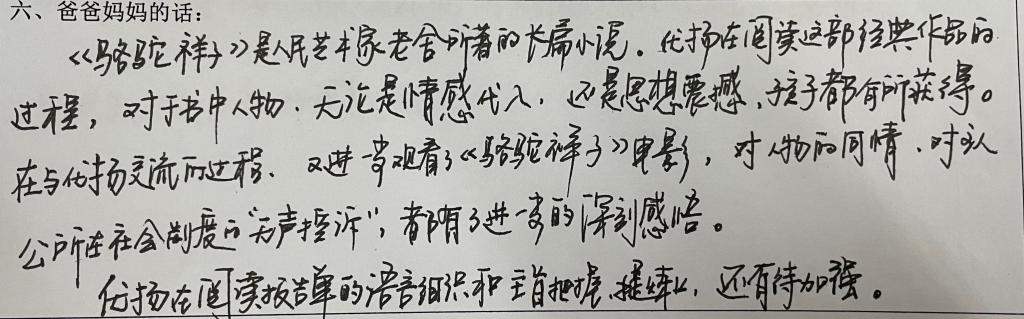 六、爸爸妈妈的话:
《骆驼祥子》是人民艺术家老舍所著的长篇小说。优扬在阅读这部经典作品的
过程,对于书中人物.无论是情感代入,还是思想震撼,孩子都有所获得。
在与优扬交流的过程.又进一步观看了《骆驼祥子》电影,对人物的同情、对主人
公所在社会制度的“无声控诉”,都有了进一步的深刻感悟。
优扬在阅读报告单的语言组织和主旨把握、提练上,还有待加强。